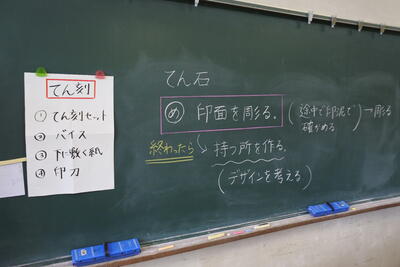 てん刻
① てん刻セット
② バイス
③ 下に敷く紙
④ 印刀
てん石
め 印面を彫る。(途中で印泥で確かめる) → 彫る
終わったら 持つ所を作る。
(デザインを考える)